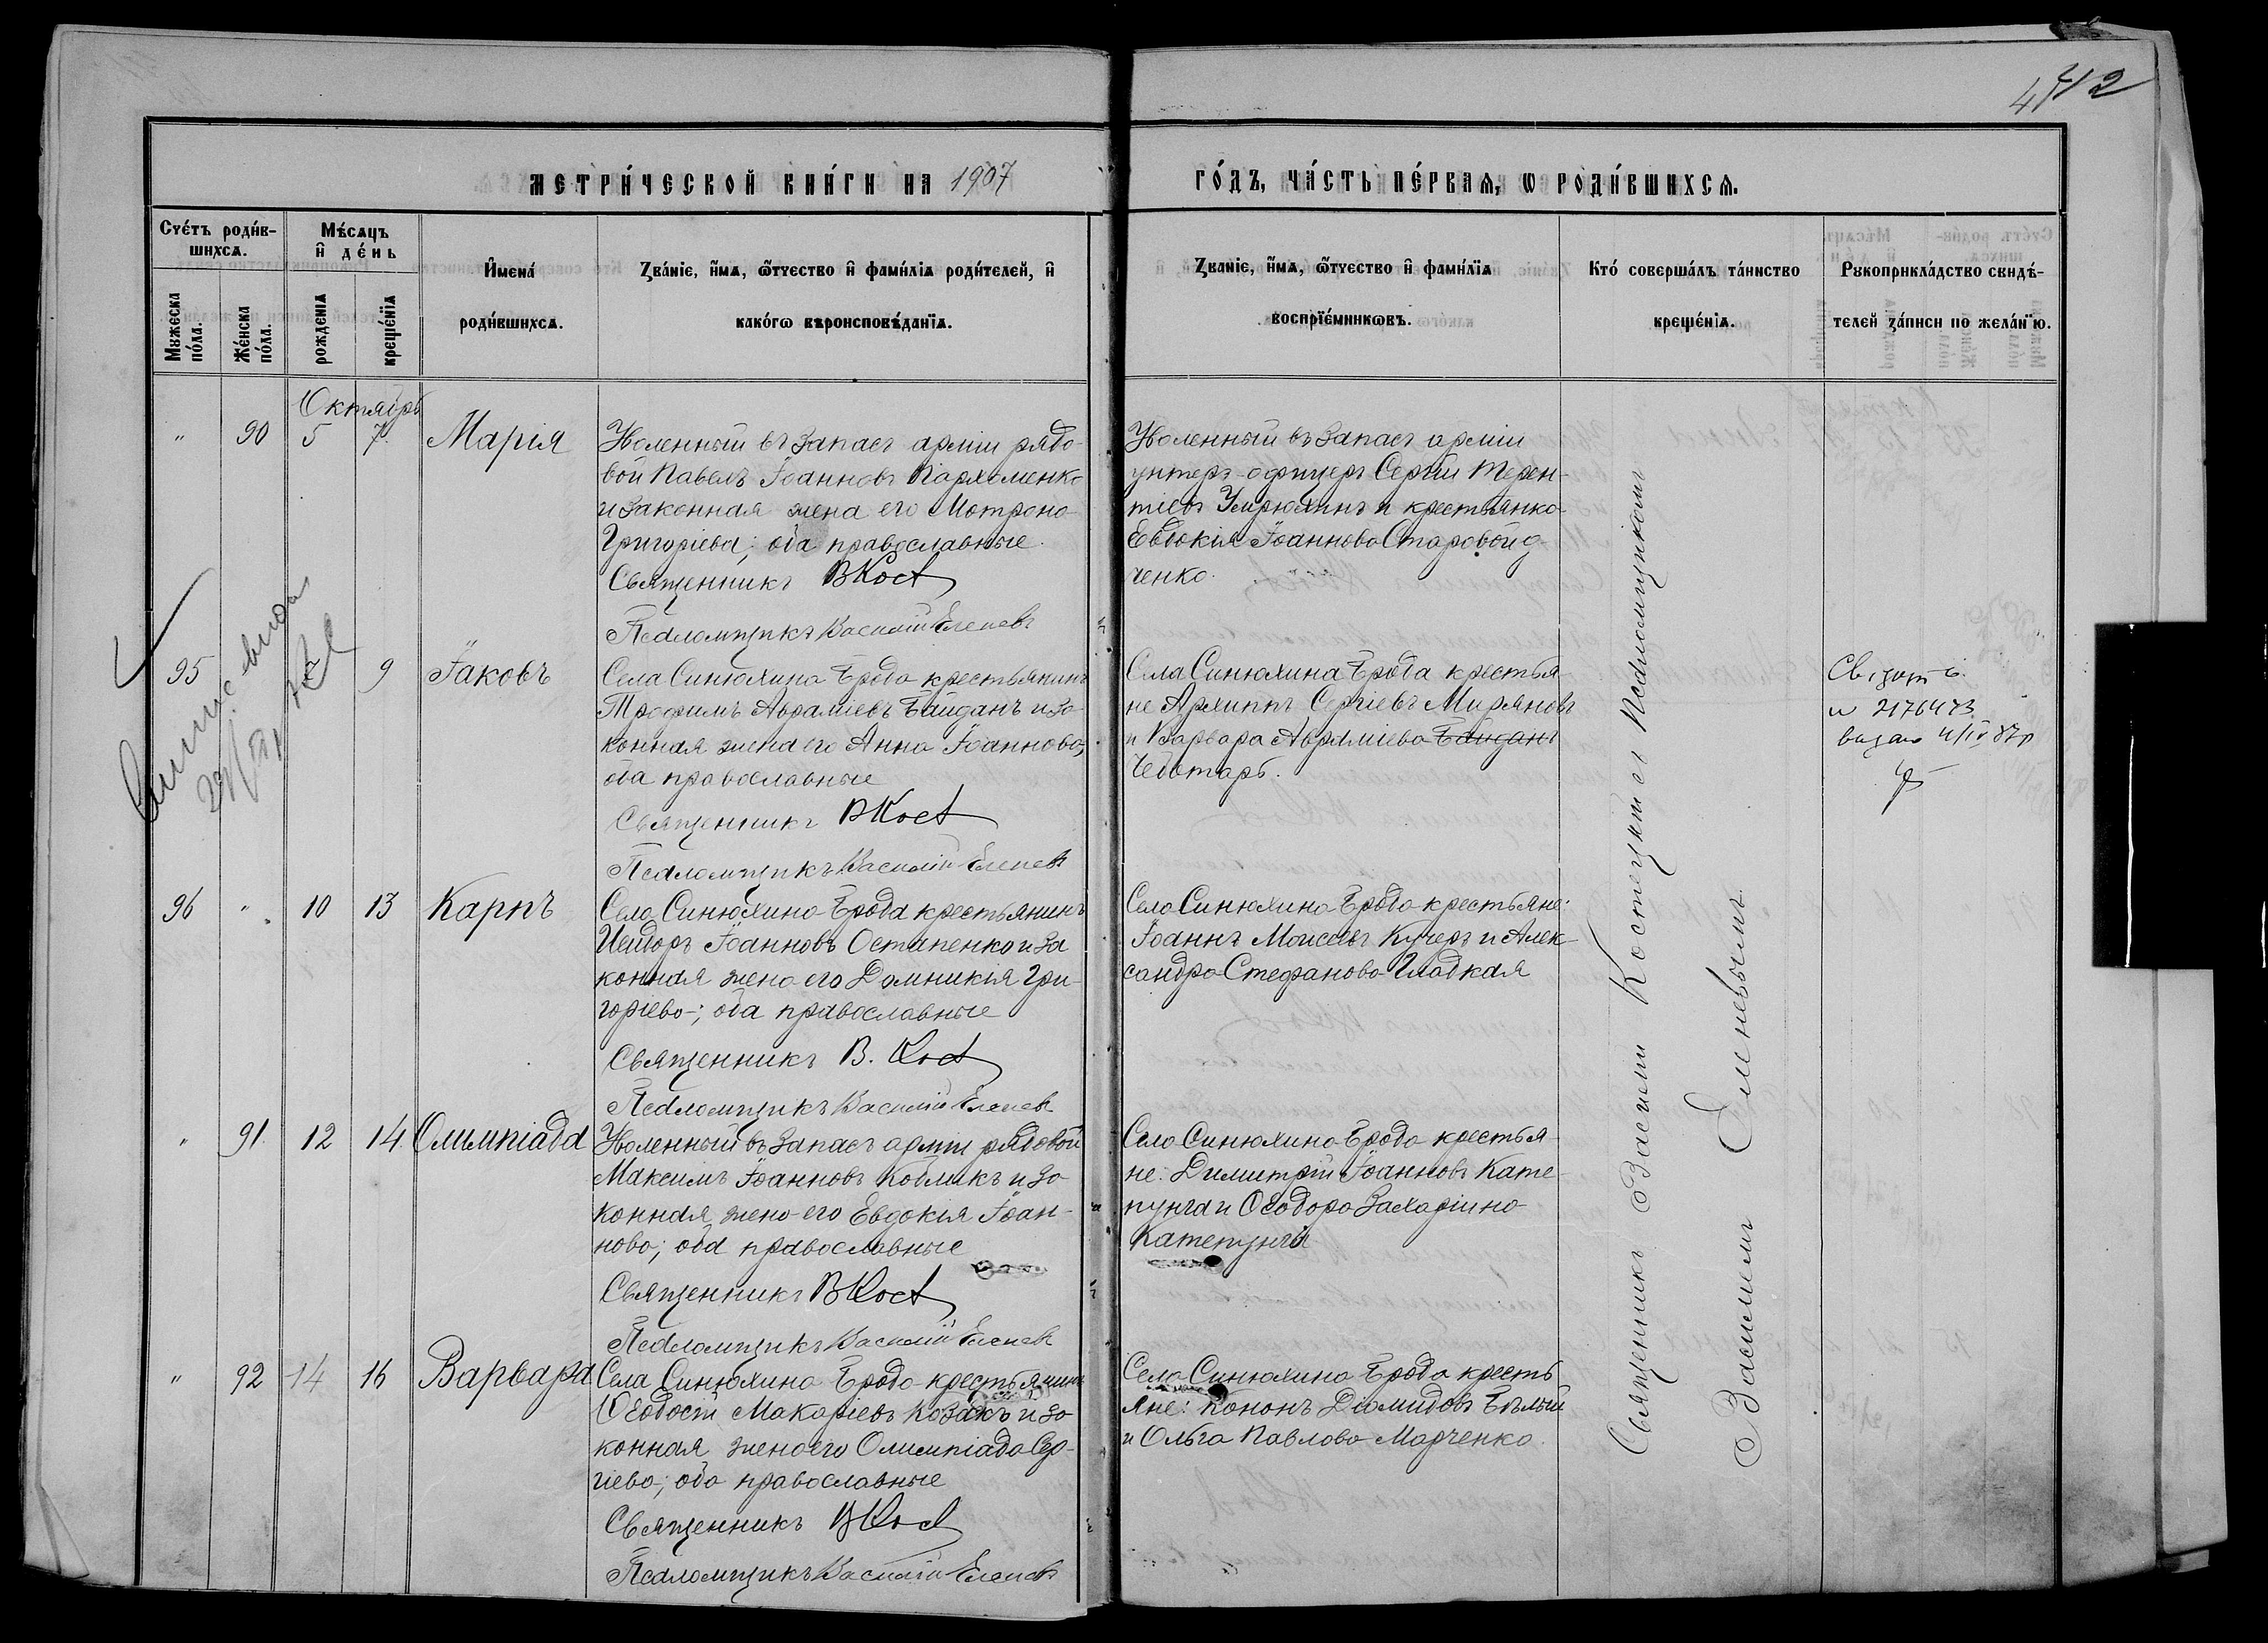 412
МЕТРИ́ЧЕСКОЙ КНИ́ГИ НА 1907
ГО́ДЪ, ЧА́СТЬ ПЕ́РВАѦ, Ѡ РОДИ́ВШИХСѦ.
Сче́тъ роди́в-
шихсѧ.
Мꙋжеска
по́ла.
Же́нска
по́ла.
Мѣ́сѧцъ
и҆ де́нь
рожденіѧ
креще́нїѧ
И҆мена́
роди́вшихсѧ.
Зва́нїе, и҆́мѧ, ѻ҆́тчество и҆ фами́лїѧ роди́телей, и҆
како́гѡ вѣроисповѣ́данїѧ.
Званїе, и҆́мѧ, ѻ҆́тчество и҆ фами́лїѧ
воспрїе́мникѡвъ.
Кто́ соверша́лъ та́инство
креще́нїѧ.
Рꙋкоприкла́дство свидѣ́-
телей за́писи по жела́нїю.
Октябрь
" 90 5 7 Марія
Уволенный въ запасъ арміи рядо-
вой Павелъ Іоанновъ Пархоменко
и законная жена его Мотрона
Григоріева; оба православные.
Священникъ ВКост
Псаломщикъ Василій Еленевъ
Уволенный въ запасъ арміи
унтеръ-офицеръ Сергій Терен-
тіевъ и крестьянка
Евдокія Іоаннова Старовойд
ченко.
95 " 9 Іаковъ
Села Синюхина Брода крестьянинъ
Трофимъ Авраміевъ Байданъ и за-
конная жена его Анна Іоаннова;
оба православные
Священникъ ВКост
Псаломщикъ Василій Еленевъ
Села Синюхина Брода крестья
не Архиппъ Сергіевъ Миряновъ
и Варвара Авраміева Байданъ
Чеботарь.
N 2176473
видано
96 " 10 13 Карпъ
Села Синюхина Брода крестьянинъ
Исидоръ Іоанновъ Остапенко и за
конная жена его Домникія Гри-
горіева; оба православные
Священникъ В. Кост
Псаломщикъ Василій Еленевъ
Села Синюхина Брода крестьяне:
Іоаннъ Моисеевъ Кучеръ и Алек-
сандра Стефанова Гладкая
" 91 12 14 Олимпіада
Уволенный въ запасъ арміи рядовой
Максимъ Іоанновъ Ковликъ и за
конная жена его Евдокія Іоан-
нова; оба православные
Священникъ ВКост
Псаломщикъ Василій Еленевъ
Села Синюхина Брода крестья-
не: Димитрій Іоанновъ Кате-
пунга и Ѳеодора Захаріина
Катепунга
" 92 14 16 Варвара
Села Синюхина Брода крестьянинъ
Ѳеодосій Макаріевъ Козакъ и за
конная жена его Олимпіада Сер-
гіева; оба православные
Священникъ ВКост
Псаломщикъ Василій Еленевъ
Села Синюхина Брода кресть
яне: Кононъ Діомидовъ Бѣлый
и Ольга Павлова Марченко.
Священникъ Василій Костецкій и Псаломщикомъ
Василіемъ Еленевымъ